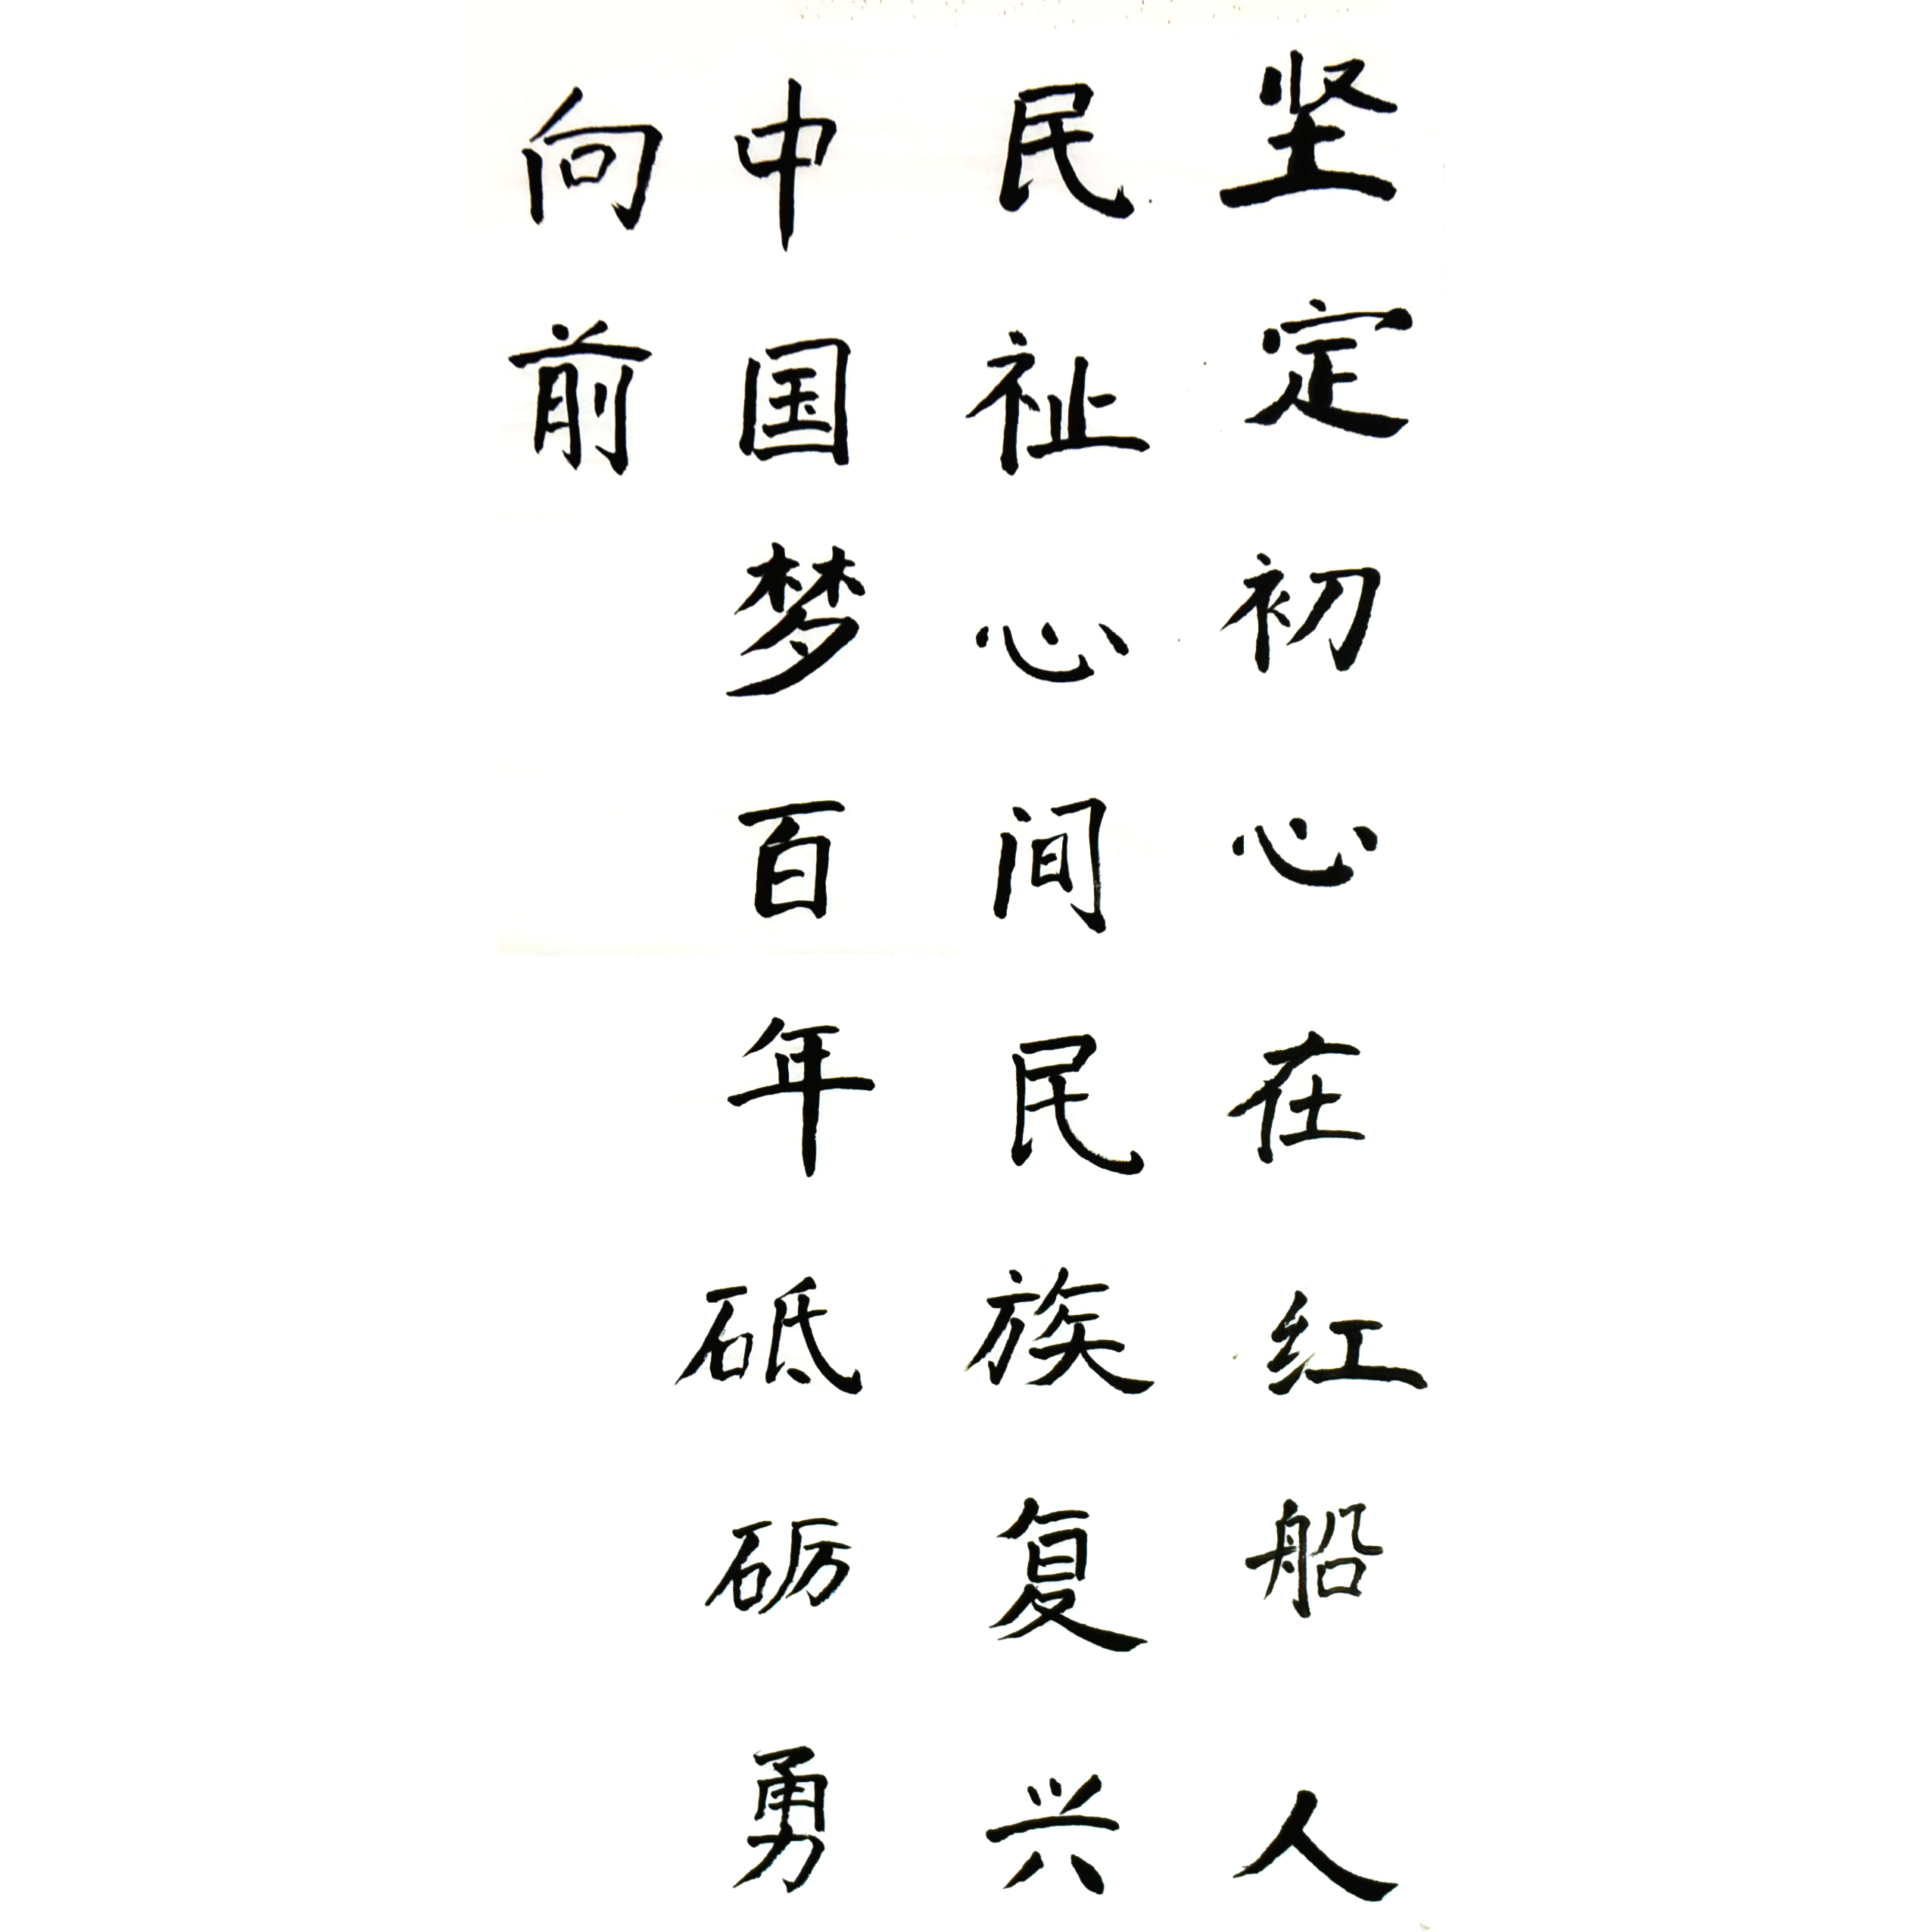 坚定初心在红船人
民祉心间民族复兴
中国梦百年砥砺勇
向前